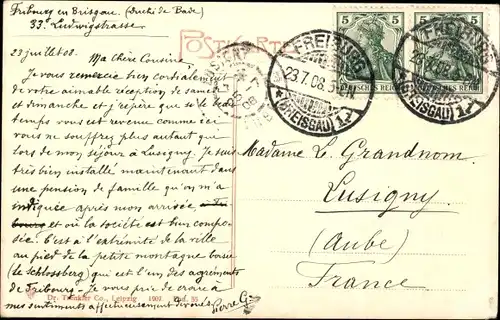 Fribourg en Brisgau. (Duché de Bade)
33. Ludwigstrasse
POSTKARTE
23 juillet 08.
Ma Chère Cousine,
Je vous remercie bien cordialement
de votre aimable réception de samedi
et dimanche et j'espère que si le beau
temps vous est revenu comme ici
vous ne souffrez plus autant que
lors de mon séjour à Lusigny. Je suis
très bien installé maintenant dans
une pension de famille qu'on m'a
indiquée après mon arrivée
et où la société est bien compo-
sée. C'est à l'extrémité de la ville
au pied de la petite montagne boisée
(le Schlossberg) qui est l'un des agréments
de Fribourg - Je vous prie de croire à
mes sentiments affectueusement dévoués.
Pierre G.
Dr. Trenkler Co., Leipzig 1907
5 5
DEUTSCHES REICH
FREIBURG
23.7.08
(BREISGAU)
FREIBURG
23.7.08
(BREISGAU)
Madame L. Grandnom.
Lusigny
(Aube)
France